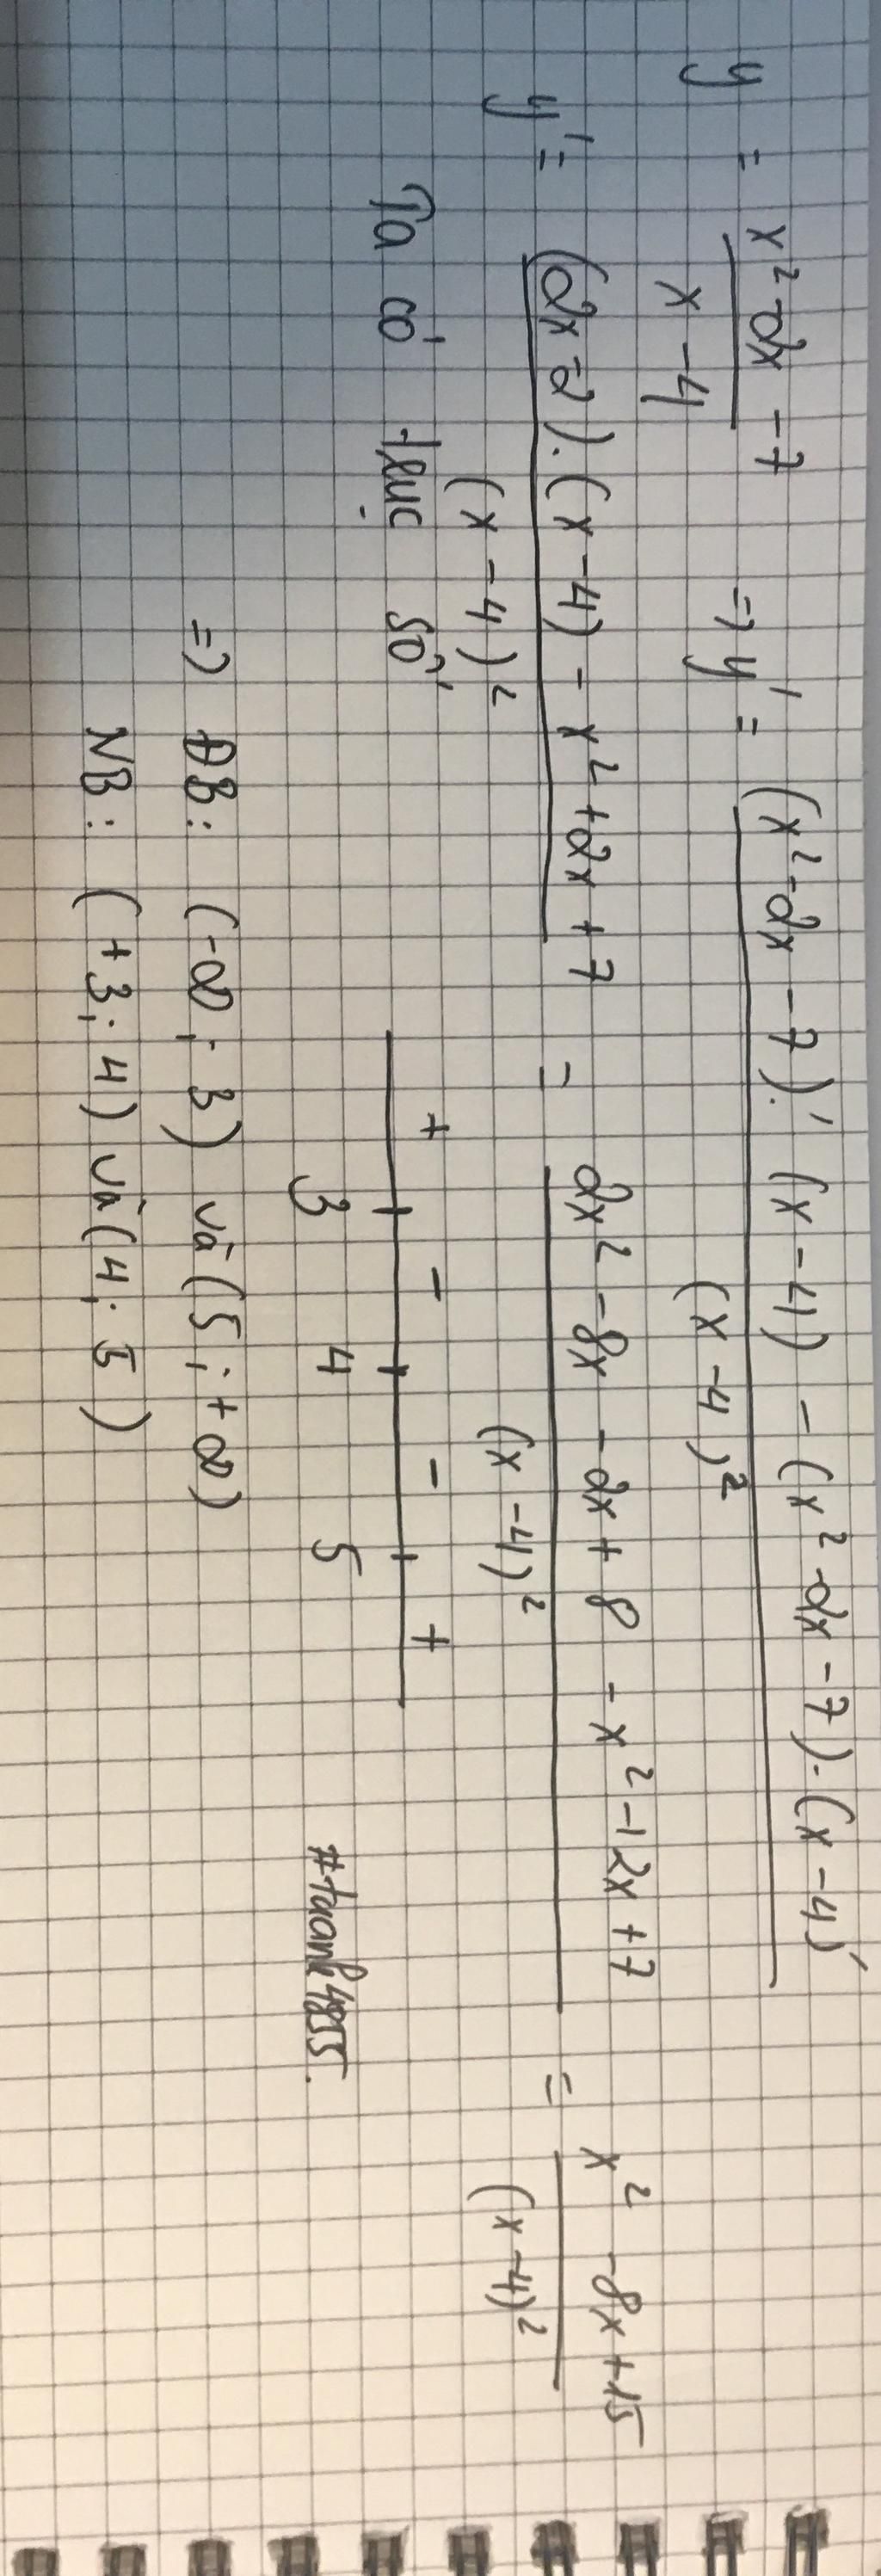 y = (x² - 2x - 7)/(x - 4) => y' = ((x² - 2x - 7)'. (x - 4) - (x² - 2x - 7). (x - 4)')/(x - 4)²
y' = ((2x - 2). (x - 4) - x² + 2x + 7)/(x - 4)² = (2x² - 8x - 2x + 8 - x² + 2x + 7)/(x - 4)² = (x² - 8x + 15)/(x - 4)²
Ta có trục số
+ - - +
3 4 5
#tuanh4855.
=> ĐB: (-∞; 3) và (5; +∞)
NB: (+3; 4) và (4; 5)